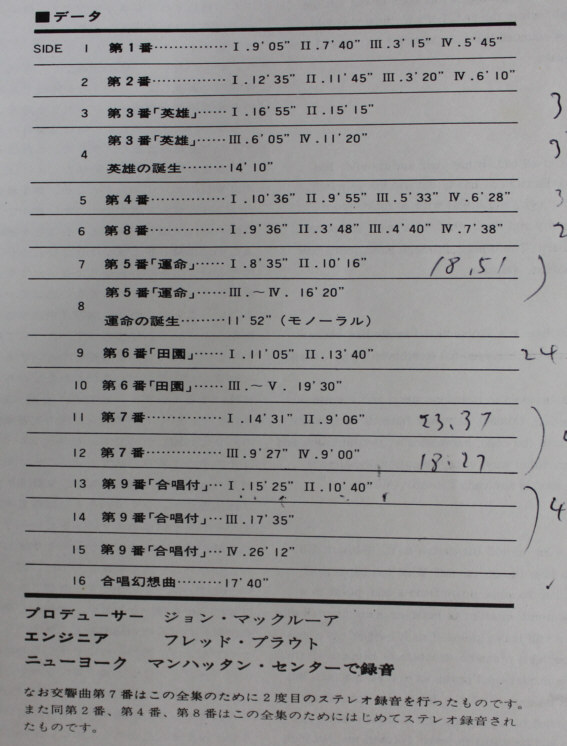 ■データ
SIDE 1 第1番…………… Ⅰ.9′05″ Ⅱ.7′40″ Ⅲ.3′15″ Ⅳ.5′45″
2 第2番…………… Ⅰ.12′35″ Ⅱ.11′45″ Ⅲ.3′20″ Ⅳ.6′10″
3 第3番「英雄」…… Ⅰ.16′55″ Ⅱ.15′15″
第3番「英雄」…… Ⅲ.6′05″ Ⅳ.11′20″
4
英雄の誕生………14′10″
5 第4番…………… Ⅰ.10′36″ Ⅱ.9′55″ Ⅲ.5′33″ Ⅳ.6′28″
6 第8番…………… Ⅰ.9′36″ Ⅱ.3′48″ Ⅲ.4′40″ Ⅳ.7′38″
7 第5番「運命」…… Ⅰ.8′35″ Ⅱ.10′16″ 18.51
第5番「運命」…… Ⅲ.〜Ⅳ. 16′20″
8
運命の誕生………11′52″(モノーラル)
9 第6番「田園」…… Ⅰ.11′05″ Ⅱ.13′40″ 24
10 第6番「田園」…… Ⅲ.〜Ⅴ. 19′30″
11 第7番…………… Ⅰ.14′31″ Ⅱ.9′06″ 23.37
12 第7番…………… Ⅲ.9′27″ Ⅳ.9′00″ 18.27
13 第9番「合唱付」… Ⅰ.15′25″ Ⅱ.10′40″
14 第9番「合唱付」… Ⅲ.17′35″ 4
15 第9番「合唱付」… Ⅳ.26′12″
16 合唱幻想曲………17′40″
プロデューサー ジョン・マックルーア
エンジニア フレッド・プラウト
ニューヨーク マンハッタン・センターで録音
なお交響曲第7番はこの全集のために2度目のステレオ録音を行ったものです。
また同第2番、第4番、第8番はこの全集のためにはじめてステレオ録音され
たものです。